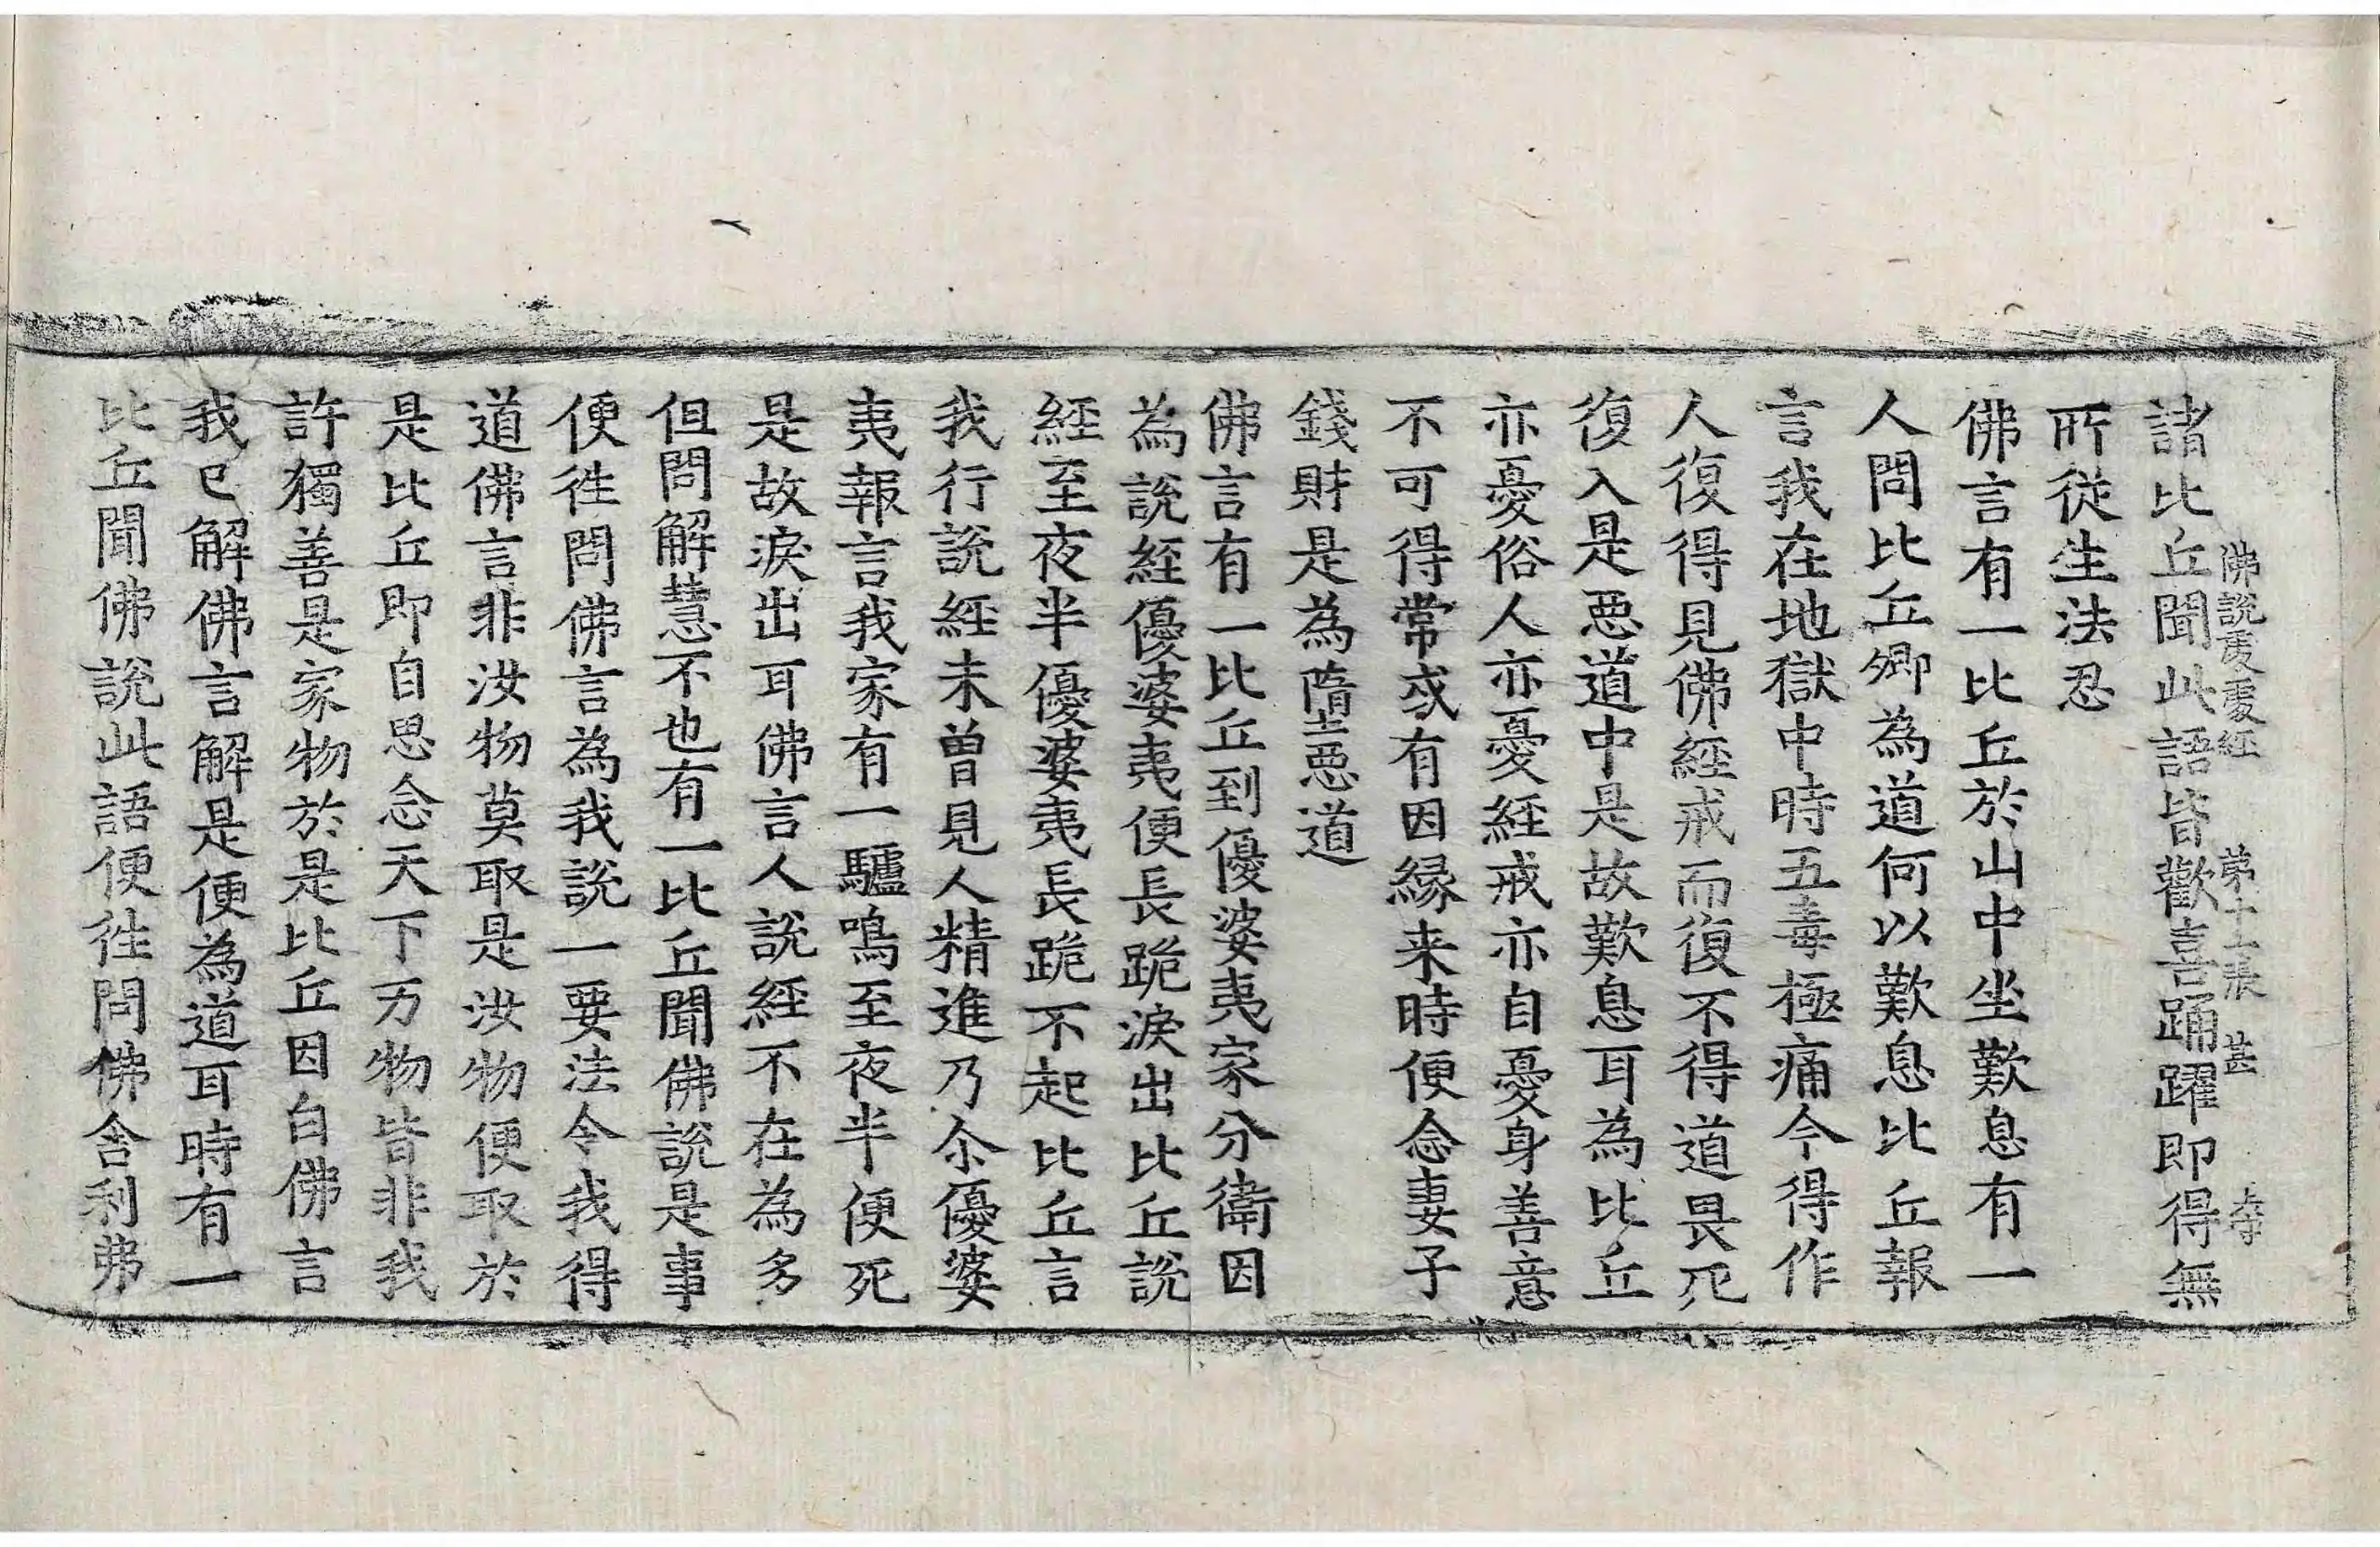 佛說處處經 第十二張 甚 大字
諸比丘聞此語皆歡喜踊躍即得無
所從生法忍
佛言有一比丘於山中坐歎息有一
人問比丘卿為道何以歎息比丘報
言我在地獄中時五毒極痛今得作
人復得見佛經戒而復不得道畏死
復入是惡道中是故歎息耳為比丘
亦憂俗人亦憂經戒亦自憂身善意
不可得常或有因緣来時便念妻子
錢財是為墮惡道
佛言有一比丘到優婆夷家分衛因
為說經優婆夷便長跪淚出比丘說
經至夜半優婆夷長跪不起比丘言
我行說經未曾見人精進乃尒優婆
夷報言我家有一驢鳴至夜半便死
是故淚出耳佛言人說經不在為多
但問解慧不也有一比丘聞佛說是事
便徃問佛言為我說一要法令我得
道佛言非汝物莫取是汝物便取於
是比丘即自思念天下万物皆非我
許獨善是家物於是比丘因白佛言
我已解佛言解是便為道耳時有一
比丘聞佛說此語便徃問佛舍利弗